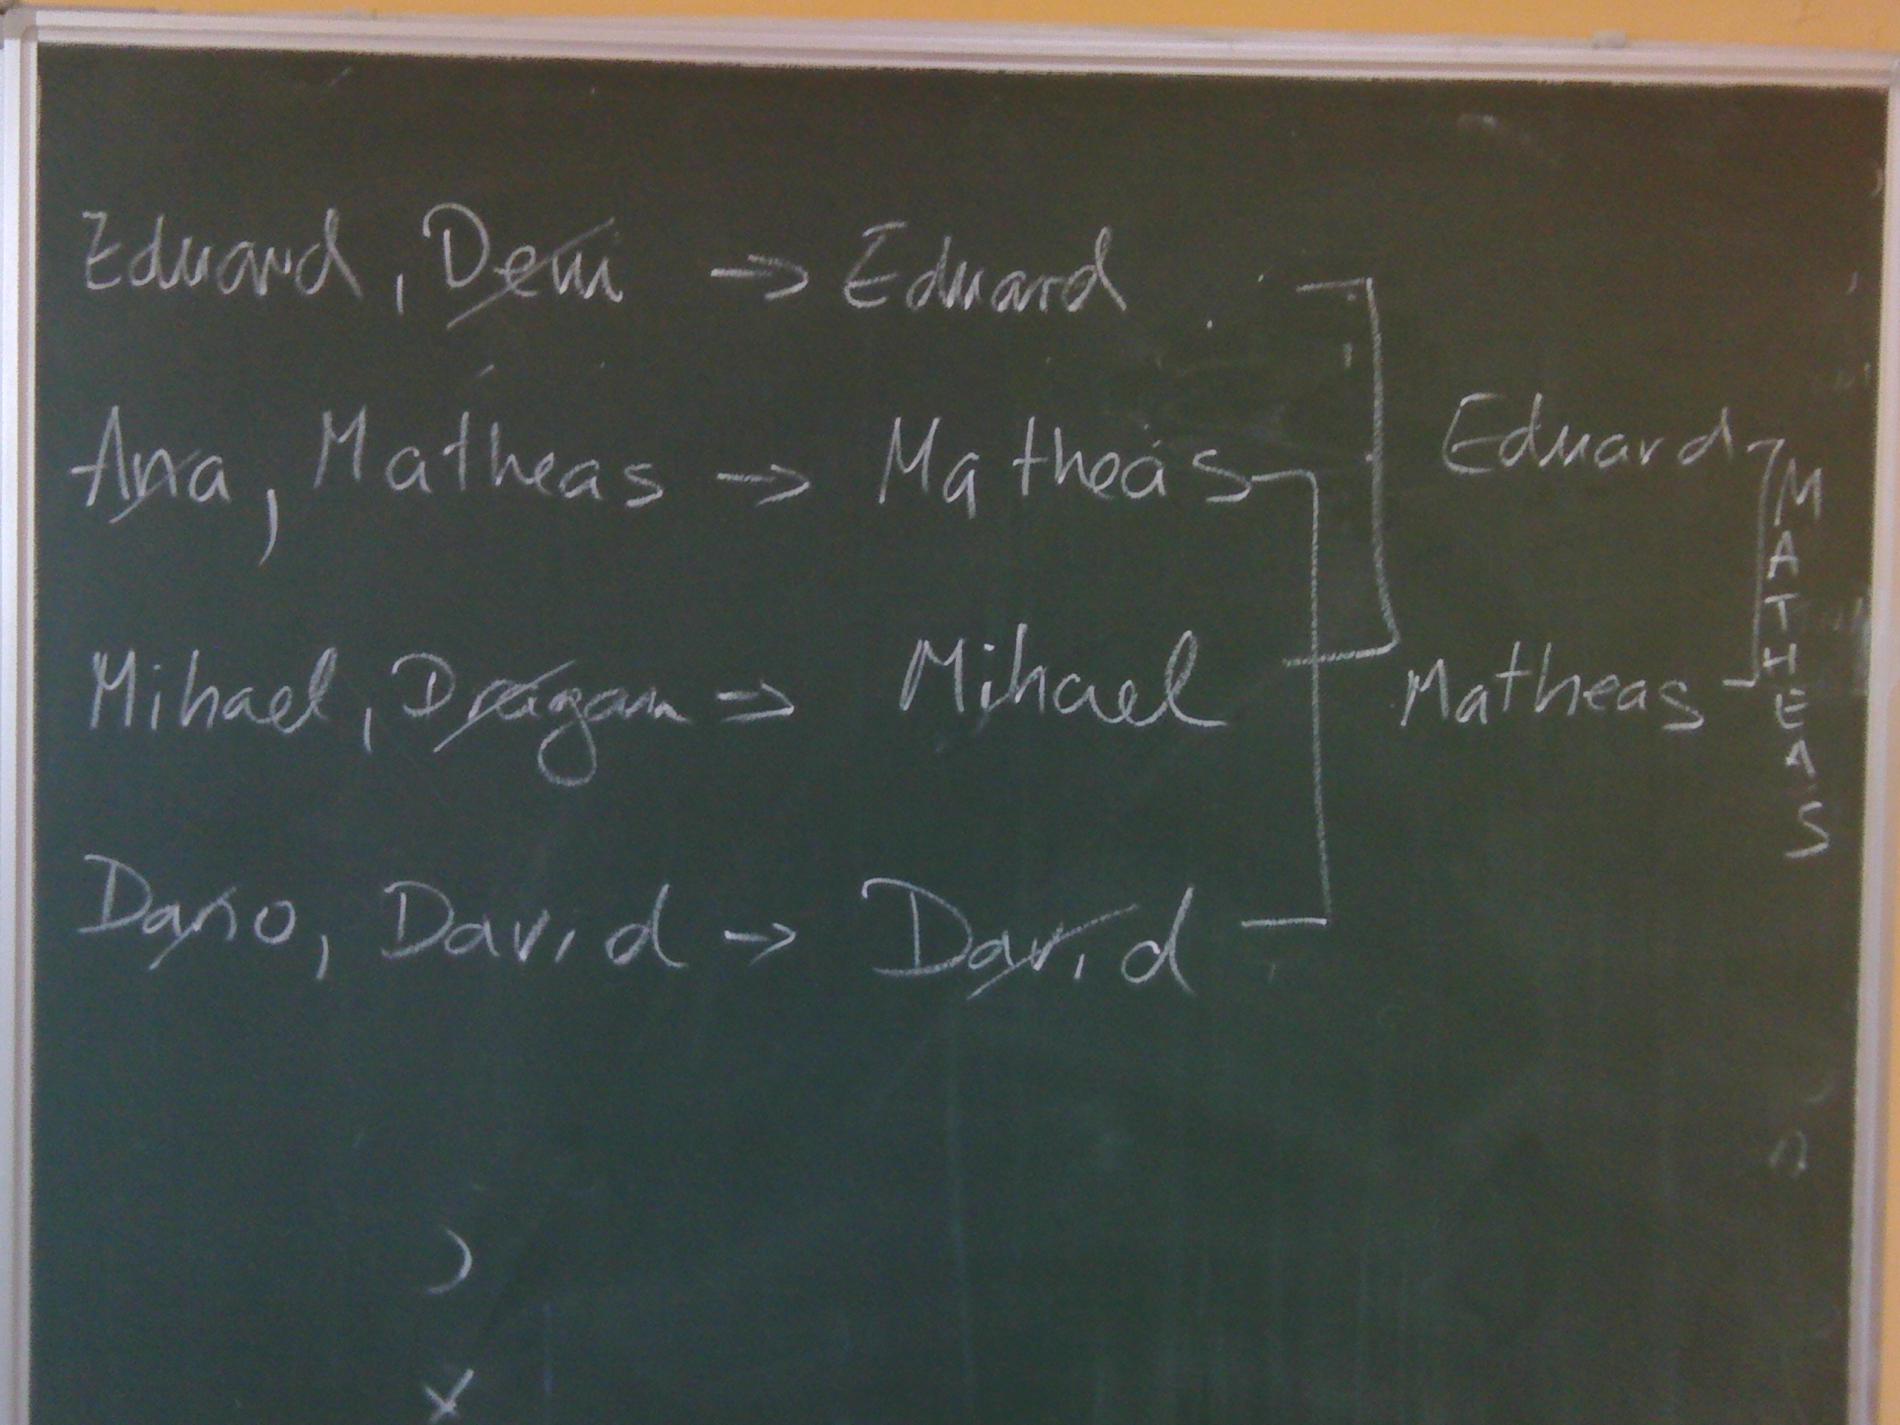 Eduard, Deni → Eduard
Eduard
Ana, Matheas → Matheas
Mihael, Dragan → Mihael
Matheas
Dano, David → David
MATHEAS
x